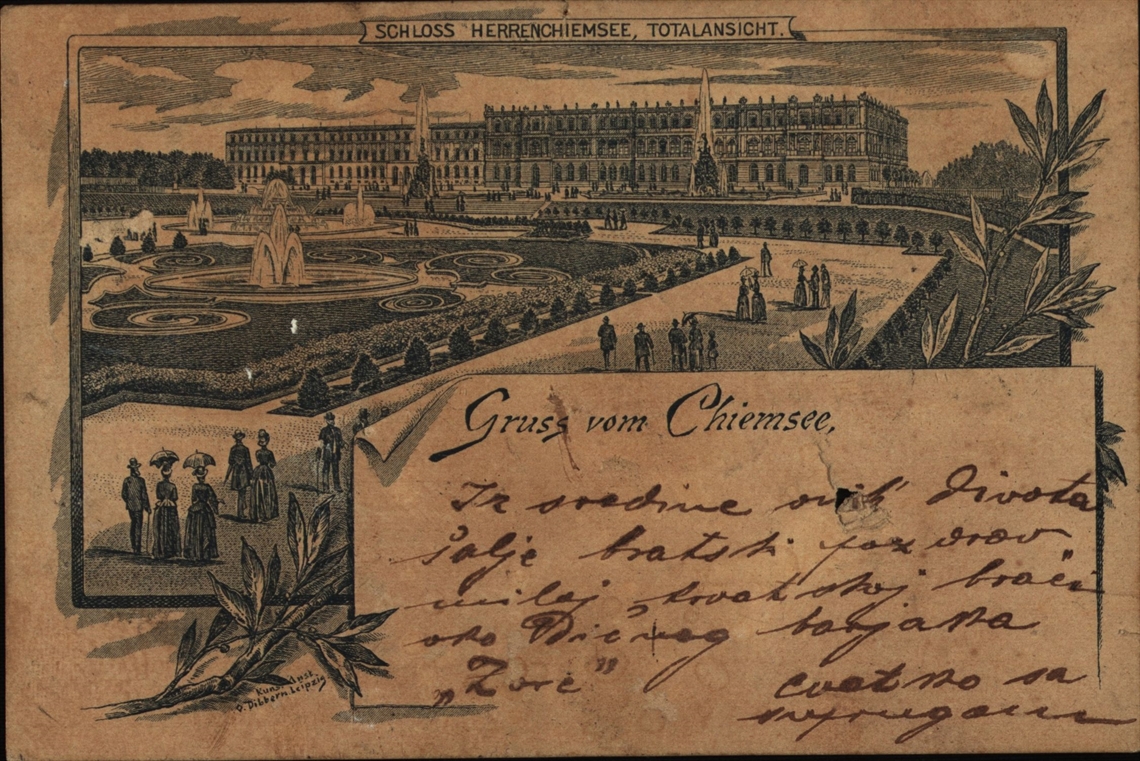 SCHLOSS HERRENCHIEMSEE, TOTALANSICHT.
Gruss vom Chiemsee,
Iz sredine ovih divota
šalje bratski pozdrav
miloj hrvatskoj braći
oko barjaka
„Zore”
Cvetko sa
suprugom
Kunst Anst.
O. Dibbern. Leipzig